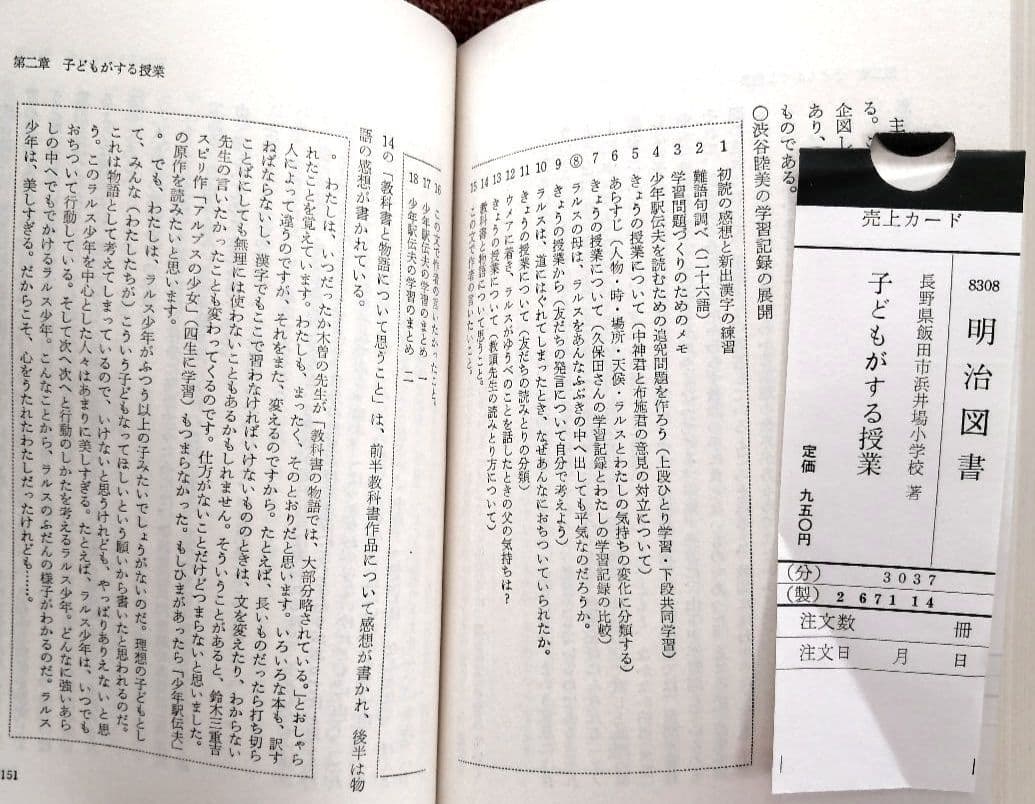 主
る。
企図し
あり、
ものである。
〇渋谷睦美の学習記録の展開
1 初読の感想と新出漢字の練習
2 難語句調べ（二十六語）
3 学習問題づくりのためのメモ
4 少年駅伝夫を読むための追究問題を作ろう（上段ひとり学習・下段共同学習）
5 きょうの授業について（中神君と布施君の意見の対立について）
6 あらすじ（人物・時・場所・天候・ラルスとわたしの気持ちの変化に分類する）
7 きょうの授業について（久保田さんの学習記録とわたしの学習記録の比較）
⑧ ラルスの母は、ラルスをあんなふぶきの中へ出しても平気なのだろうか。
9 きょうの授業から（友だちの発言について自分で考えよう）
10 ラルスは、道にはぐれてしまったとき、なぜあんなにおちついていられたか。
11 きょうの授業について（友だちの読みとりの分類）
12 ウメアに着き、ラルスがゆうべのことを話したときの父の気持ちは？
13 きょうの授業について（教頭先生の読みとり方について）
14 教科書と物語について思うこと。
15 この文で作者の言いたいこと。
16 この文で作者の言いたかったこと。
17 少年駅伝夫の学習のまとめ 一
18 少年駅伝夫の学習のまとめ 二
売上カード
8308
明治図書
長野県飯田市浜井場小学校 著
子どもがする授業
定価 九五〇円
(分) 3037
(製) 267114
注文数 冊
注文日 月 日
第二章 子どもがする授業
14の「教科書と物語について思うこと」は、前半教科書作品について感想が書かれ、後半は物
語の感想が書かれている。
。 わたしは、いつだったか木曽の先生が「教科書の物語では、大部分略されている。」とおしゃら
れたことを覚えています。わたしも、まったく、そのとおりだと思います。いろいろな本も、訳す
人によって違うのですが、それをまた、変えるのですから。たとえば、長いものだったら打ち切ら
ねばならないし、漢字でもここで習わなければいけないもののときは、文を変えたり、わからない
ことばにしても無理には使わないこともあるかもしれません。そういうことがあると、鈴木三重吉
先生の言いたかったことも変わってくるのです。仕方がないことだけどつまらないと思いました。
スピリ作「アルプスの少女」（四生に学習）もつまらなかった。もしひまがあったら「少年駅伝夫」
の原作を読みたいと思います。
。 でも、わたしは、ラルス少年がふつう以上の子みたいでしょうがないのだ。理想の子どもとし
て、みんな（わたしたちが）こういう子どもなってほしいという願いから書いたと思われるのだ。
これは物語として考えてしまっているので、いけないと思うけれども、やっぱりありえないと思
う。このラルス少年を中心とした人々はあまりに美しすぎる。たとえば、ラルス少年は、いつでも
おちついて行動している。そして次へ次へと行動のしかたを考えるラルス少年。どんなに強いあら
しの中へでもでかけるラルス少年。こんなことから、ラルスのふだんの様子がわかるのだ。ラルス
少年は、美しすぎる。だからこそ、心をうたれたわたしだったけれども……。
151